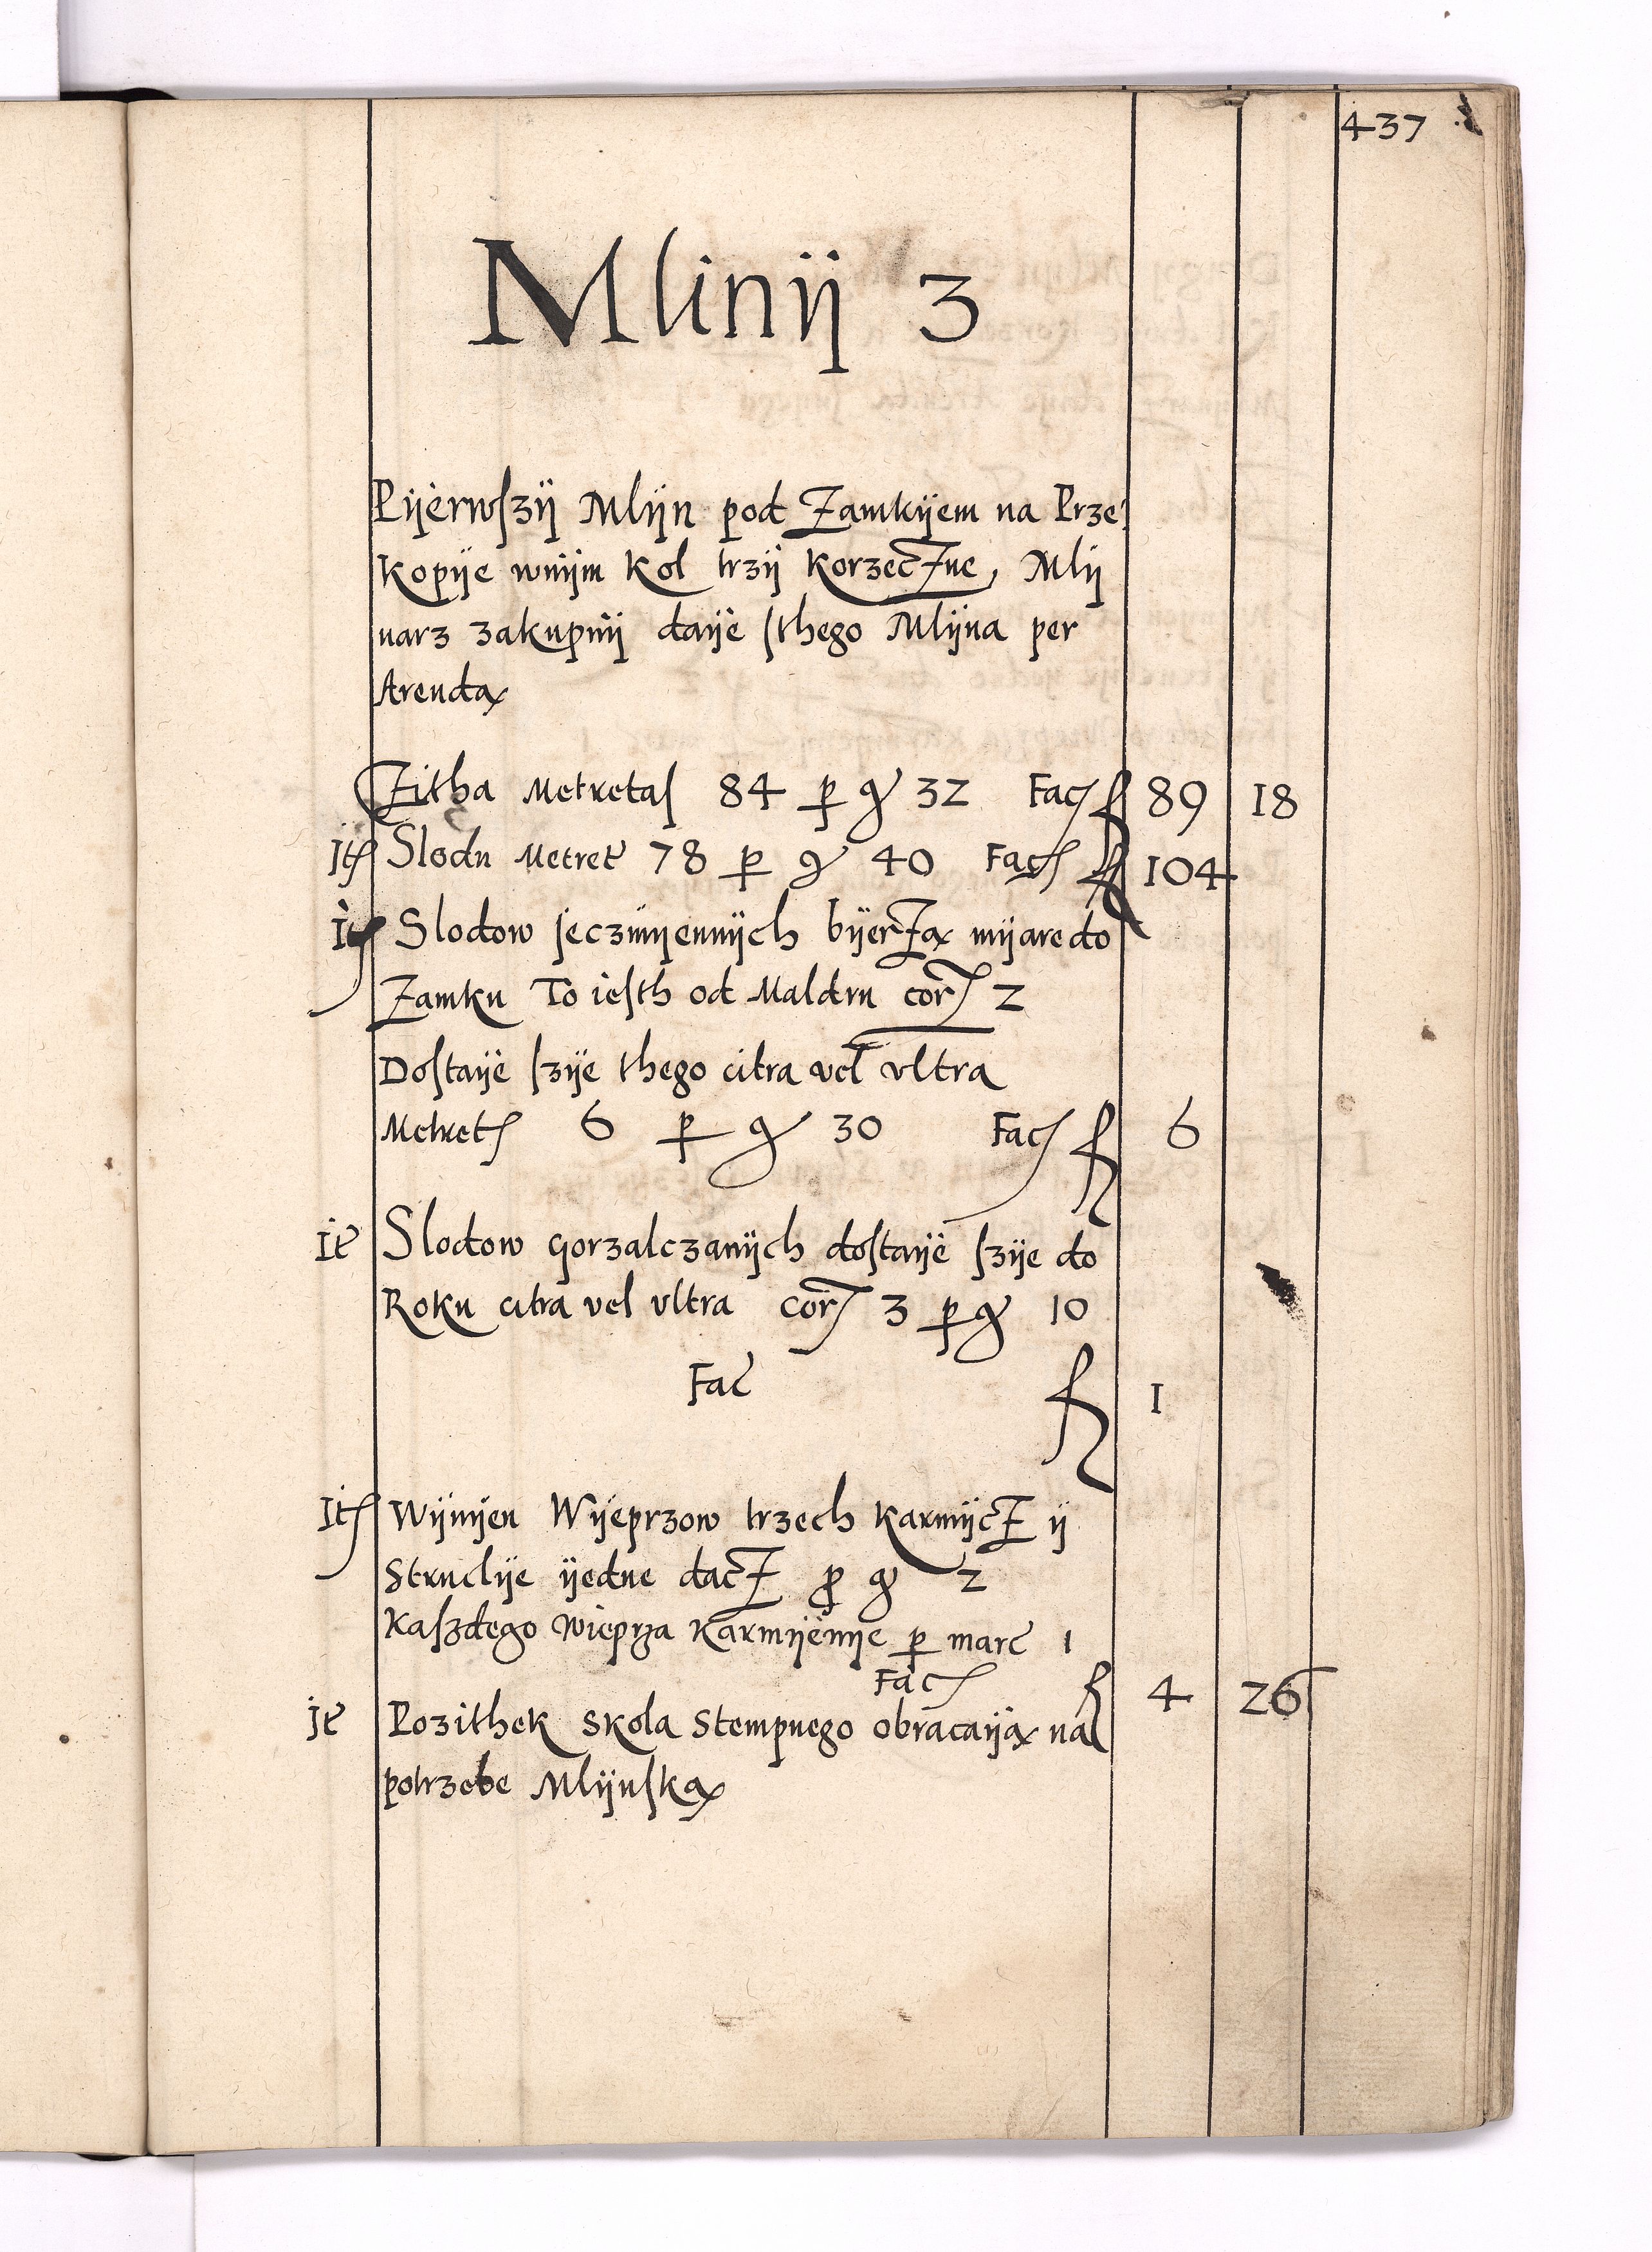 437
Mlinij 3
Pijerwſzij Mlijn pod Zamkijem na Prze
kopije wnijm kol trzij korzeczne, Mlij
narz zakupnij daije ſthego Mlijna per
Arendax
Zitha Metretaſ 84 p gͬ 32 Fac fl 89 18
Itͤ Slodu Metret 78 p gͬ 40 Fac fl 104
It Slodow jeczmijennijch bijerzax mijare do
Zamku To ieſth od Maldru cor 2
Doſtaije ſzije thego citra vel vltra
Metret 6 p gͬ 30 Fac fl 6
It Slodow gorzalczanijch doſtaije ſzije do
Roku citra vel vltra cor 3 p gͬ 10
Fac fl 1
It Wijnijen Wijeprzow trzech karmijcz ij
Struclije ijedne dacz p gͬ 2
Kaſzdego Wieprza Karmijenije p marc 1
Fac fl 4 26
It Pozithek skola Stempnego obracaijax na
potrzebe Mlijnſkax